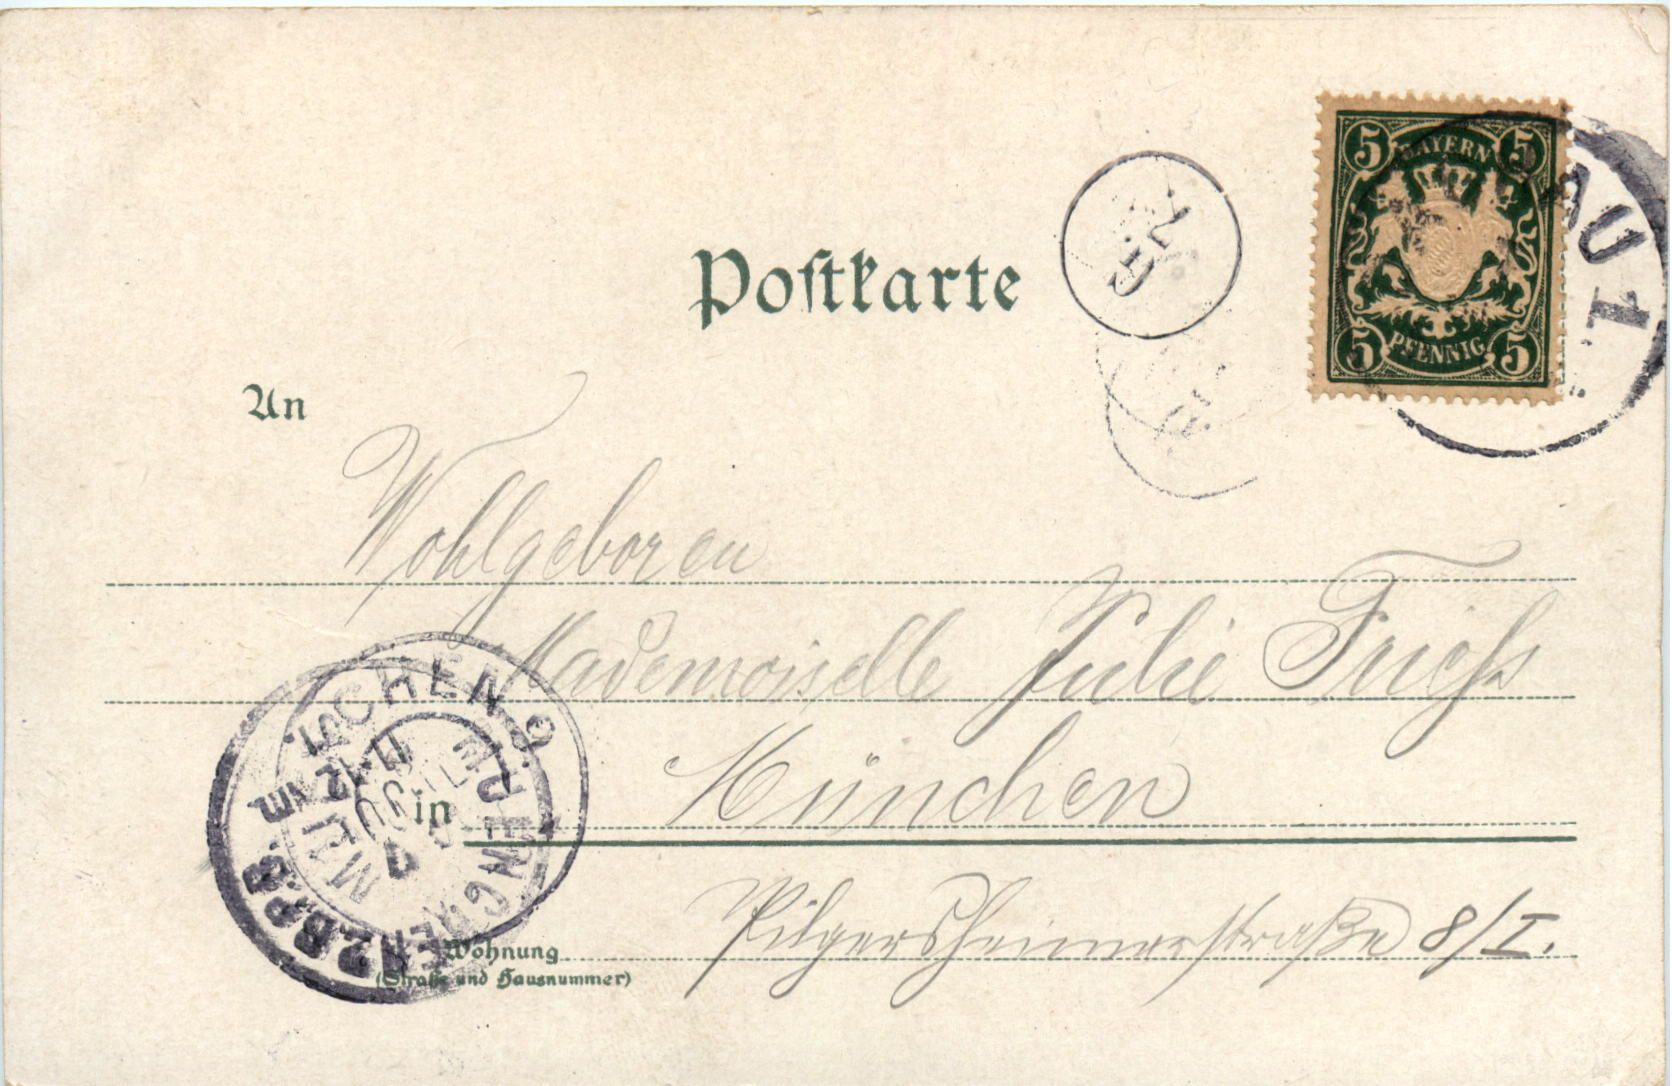 5 BAYERN 5
5 PFENNIG 5
AU 1
Postkarte
An
Wohlgeboren
Mademoiselle Julie Frieß
in München
Wohnung
(Straße und Hausnummer)
Pilgersheimerstraße 8/I.
MUENCHEN